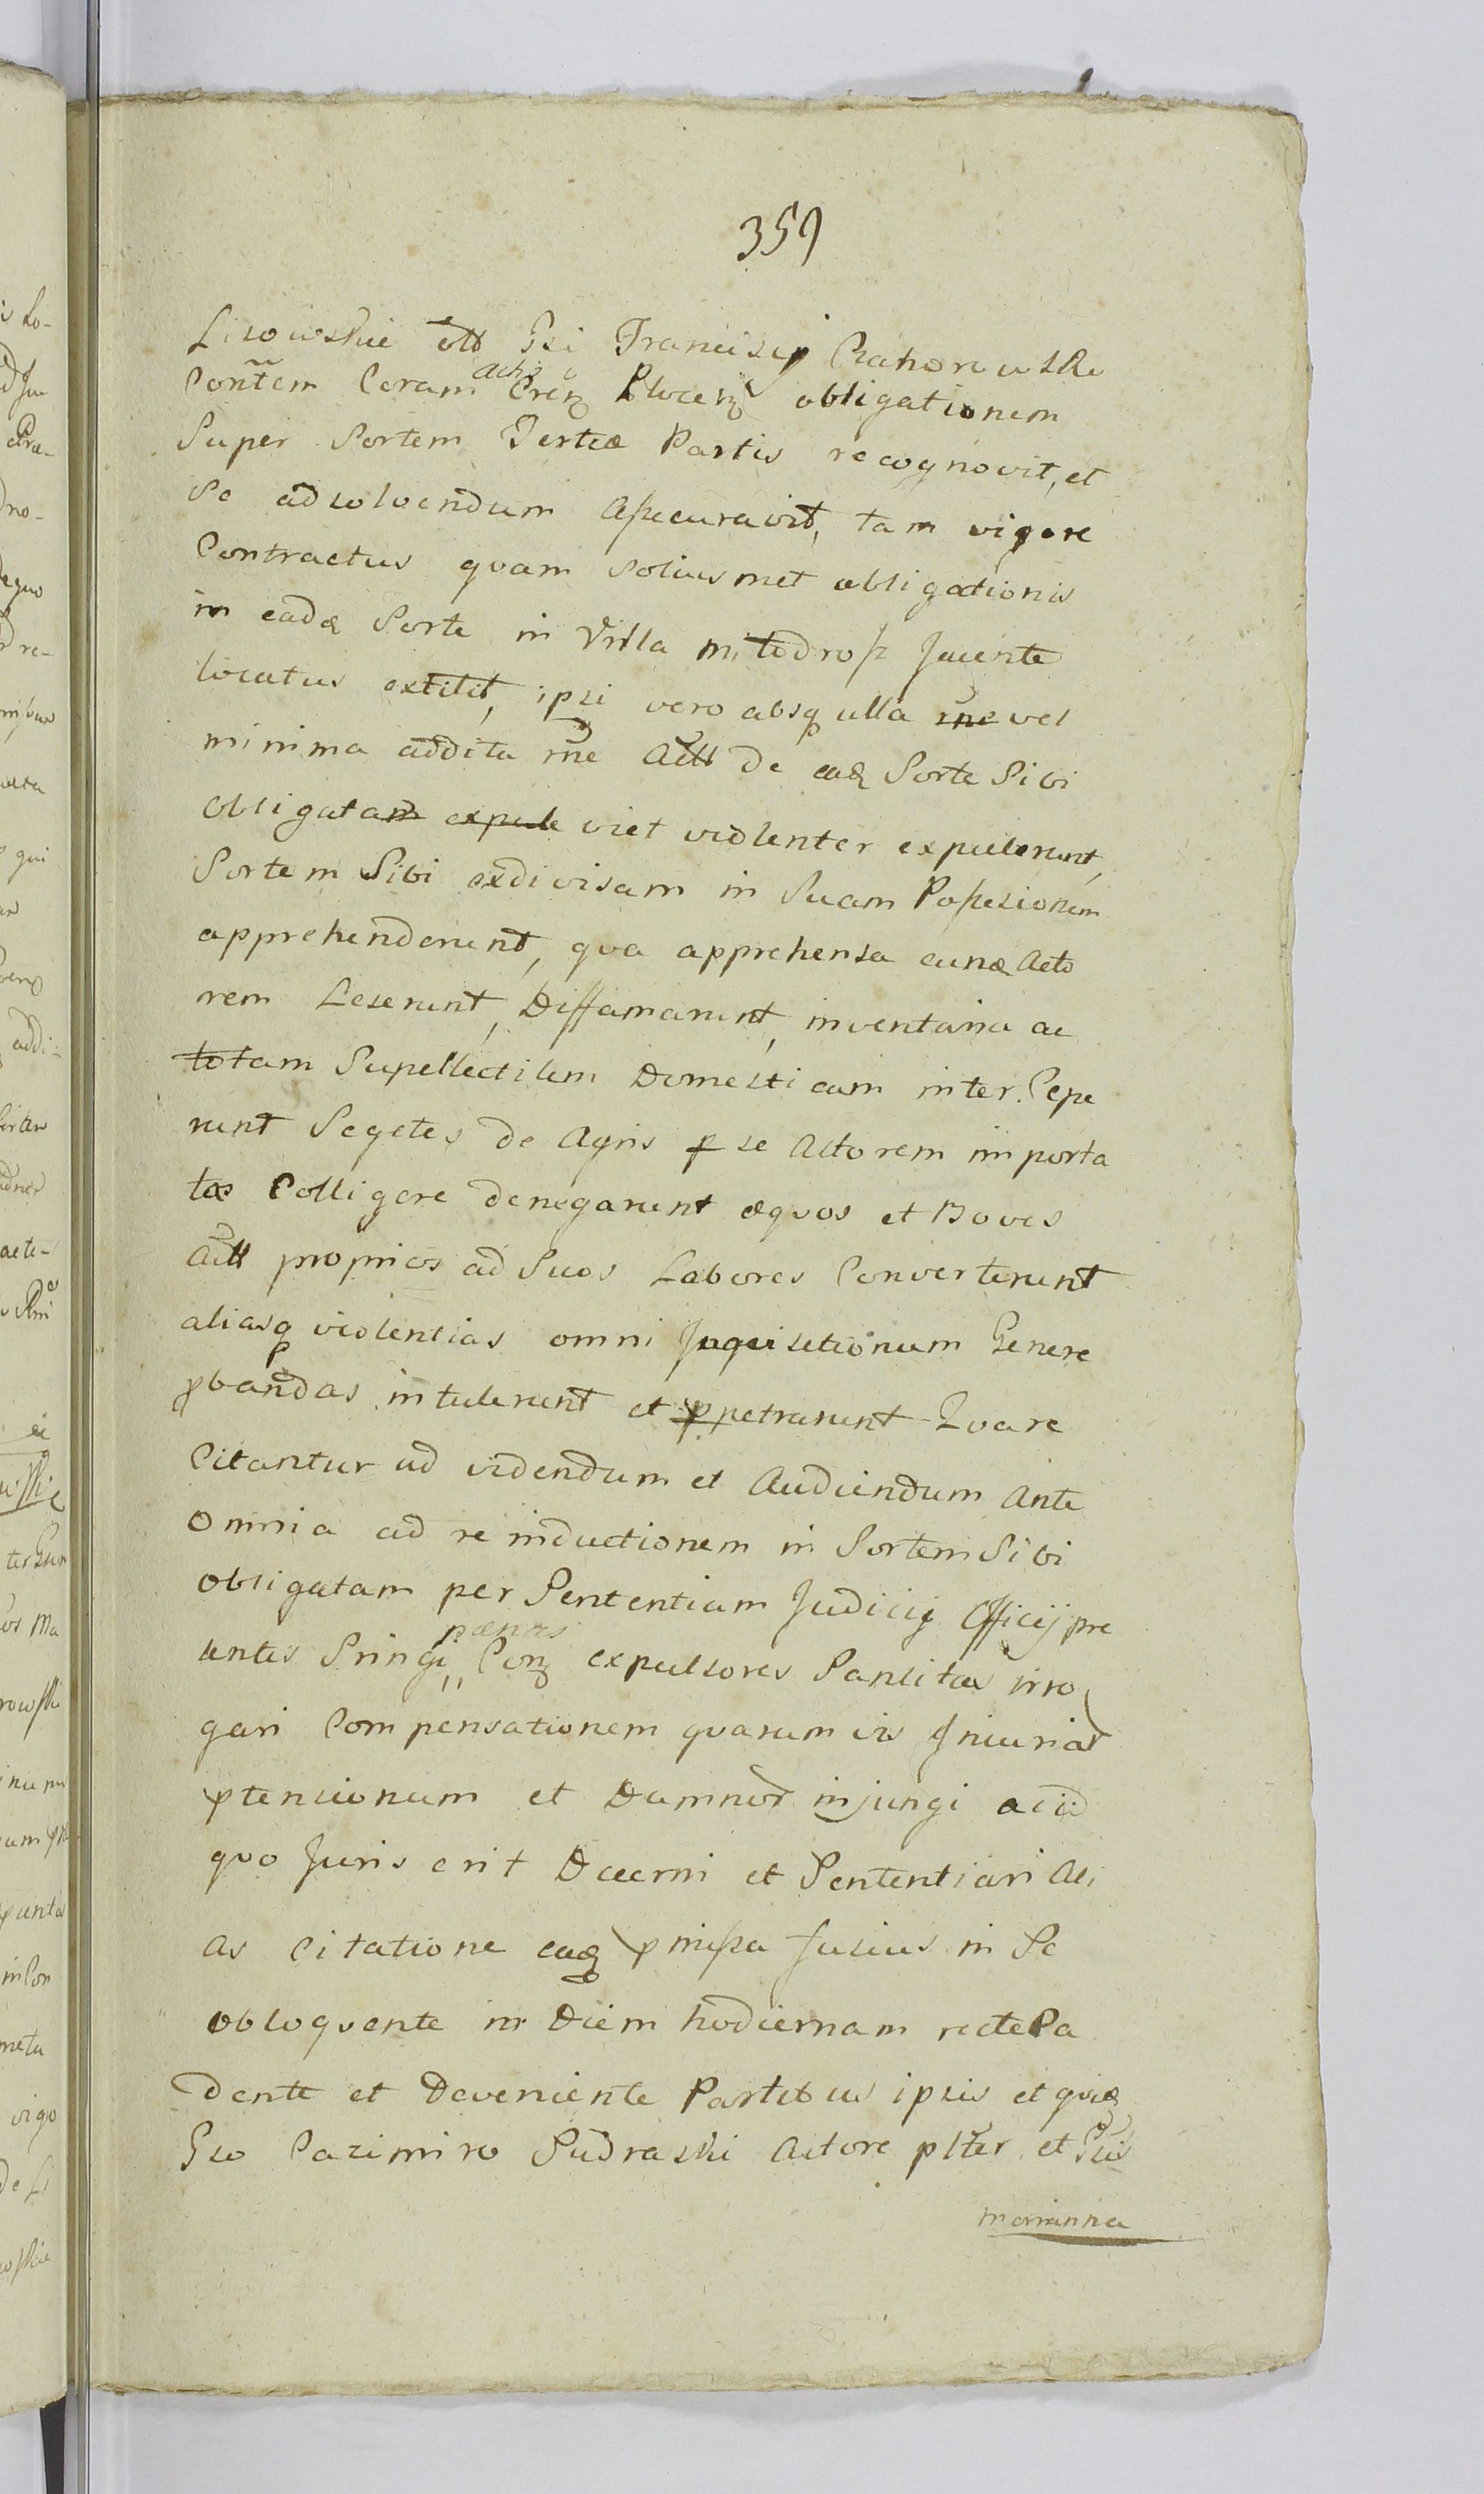 359
Lisowskie Gsi Francisci Czahorowski
Contem Coram Actis Plocen obligationem
Super Sortem Tertiæ Partis recognovit, et
Se adsolvendum assecuravit, tam vigore
Contractus quam soliusmet obligationis
in eadē Sorte in Villa mitodrosz Jacente
locatus extitit, ipsi vero absq ulla rne vel
minima addita rne Actt de eadē Sorte Sibi
obligatam expule viet violenter expulerunt,
Sortem Sibi exdivisam in Suam Possesionem
apprehenderunt, qua apprehensa eundē Acto
rem Leserunt, Diffamarunt, inventaria ac
totam Supellectilem Domesticam inter Cepe
runt Segetes de Agris p se Actorem importa
tas Colligere denegarunt æquos et Boves
Actt proprios ad Suos Labores Converterunt
aliasq violentias omni Inquisitionum Genere
pbandas intulerunt et ppetrarunt Quare
Citantur ad videndum et Audiendum Ante
Omnia ad reinductionem in Sortem Sibi
Obligatam per Sententiam Judicij Officij pre
sentis Stringi, pænas Con expulsores Sancitas irro
gari Compensationem quarumvis Injuriar
ptensionum et Damnor injungi ac id
quo Juris erit Decerni et Sententiari Ali
as Citatione eadē pmissa fusius in Se
obloquente in Diem hodiernam recte Ca
dente et Deveniente Partibus ipsis et quidē
Gso Casimiro Sudraski Actore plter et Gsis
marianna